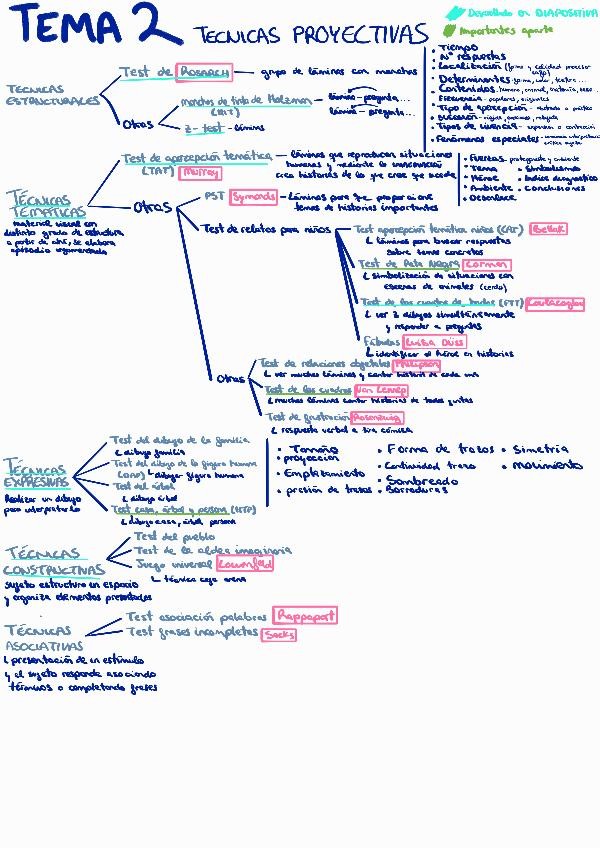 TEMA 2 TECNICAS PROYECTIVAS
Desarrollado en DIAPOSITIVA
Importantes aparte
TÉCNICAS
ESTRUCTURALES
Test de Rosarch - grupo de láminas con manchas
Otras
manchas de tinta de Holzman - lámina - pregunta...
(HIT) lámina - pregunta...
Z-test - láminas
• Tiempo
• Nº respuestas
• Localización
• Determinantes
• Contenidos
• Frecuencia
• Tipo de apercepción
• Sucesión
• Tipos de vivencia
• Fenómenos especiales
TÉCNICAS
TEMÁTICAS
material visual con
distinto grado de estructura
a partir de ahí, se elabora
episodio argumentado
Test de apercepción temática - láminas que reproducen situaciones
(TAT) Murray humanas y mediante la
crea historias de lo que cree que sucede
• Fuerzas: protagonista y ambiente
• Tema • Simbolismo
• Héroe • Índice diagnóstico
• Ambiente • Conclusiones
• Desenlace
Otras
PST Symonds - láminas para que proporcione
temas de historias importantes
Test de relatos para niños
Test apercepción temática niños (CAT) Bellak
láminas para buscar respuestas
sobre temas concretos
Test de Pata Negra Corman
simbolización de situaciones con
escenas de animales (cerdo)
Test de los cuentos de hadas (FTT) Coulacoglou
ver 3 dibujos simultáneamente
y responder a preguntas
Fábulas Luisa Düss
identificar el héroe en historias
Otras
Test de relaciones objetales Philipson
ver muchas láminas y contar historia de cada una
Test de los cuadros Van Lennep
muchas láminas contar historias de todas juntas
Test de frustración Rosenzweig
respuesta verbal a tira cómica
TÉCNICAS
EXPRESIVAS
Realizar un dibujo
para interpretarlo
Test del dibujo de la familia
dibuja familia
Test del dibujo de la figura humana
(DAP) dibuja figura humana
Test del árbol
dibuja árbol
Test casa, árbol y persona (HTP)
dibuja casa, árbol, persona
• Tamaño • Forma de trazos • Simetría
• proyección • Continuidad trazo • movimiento
• Emplazamiento • Sombreado
• presión de trazos • Borraduras
TÉCNICAS
CONSTRUCTIVAS
sujeto estructura en espacio
y organiza elementos presentados
Test del pueblo
Test de la aldea imaginaria
Juego universal Lowenfeld
técnica caja arena
TÉCNICAS
ASOCIATIVAS
presentación de un estímulo
y el sujeto responde asociando
términos o completando frases
Test asociación palabras Rappaport
Test frases incompletas Sacks